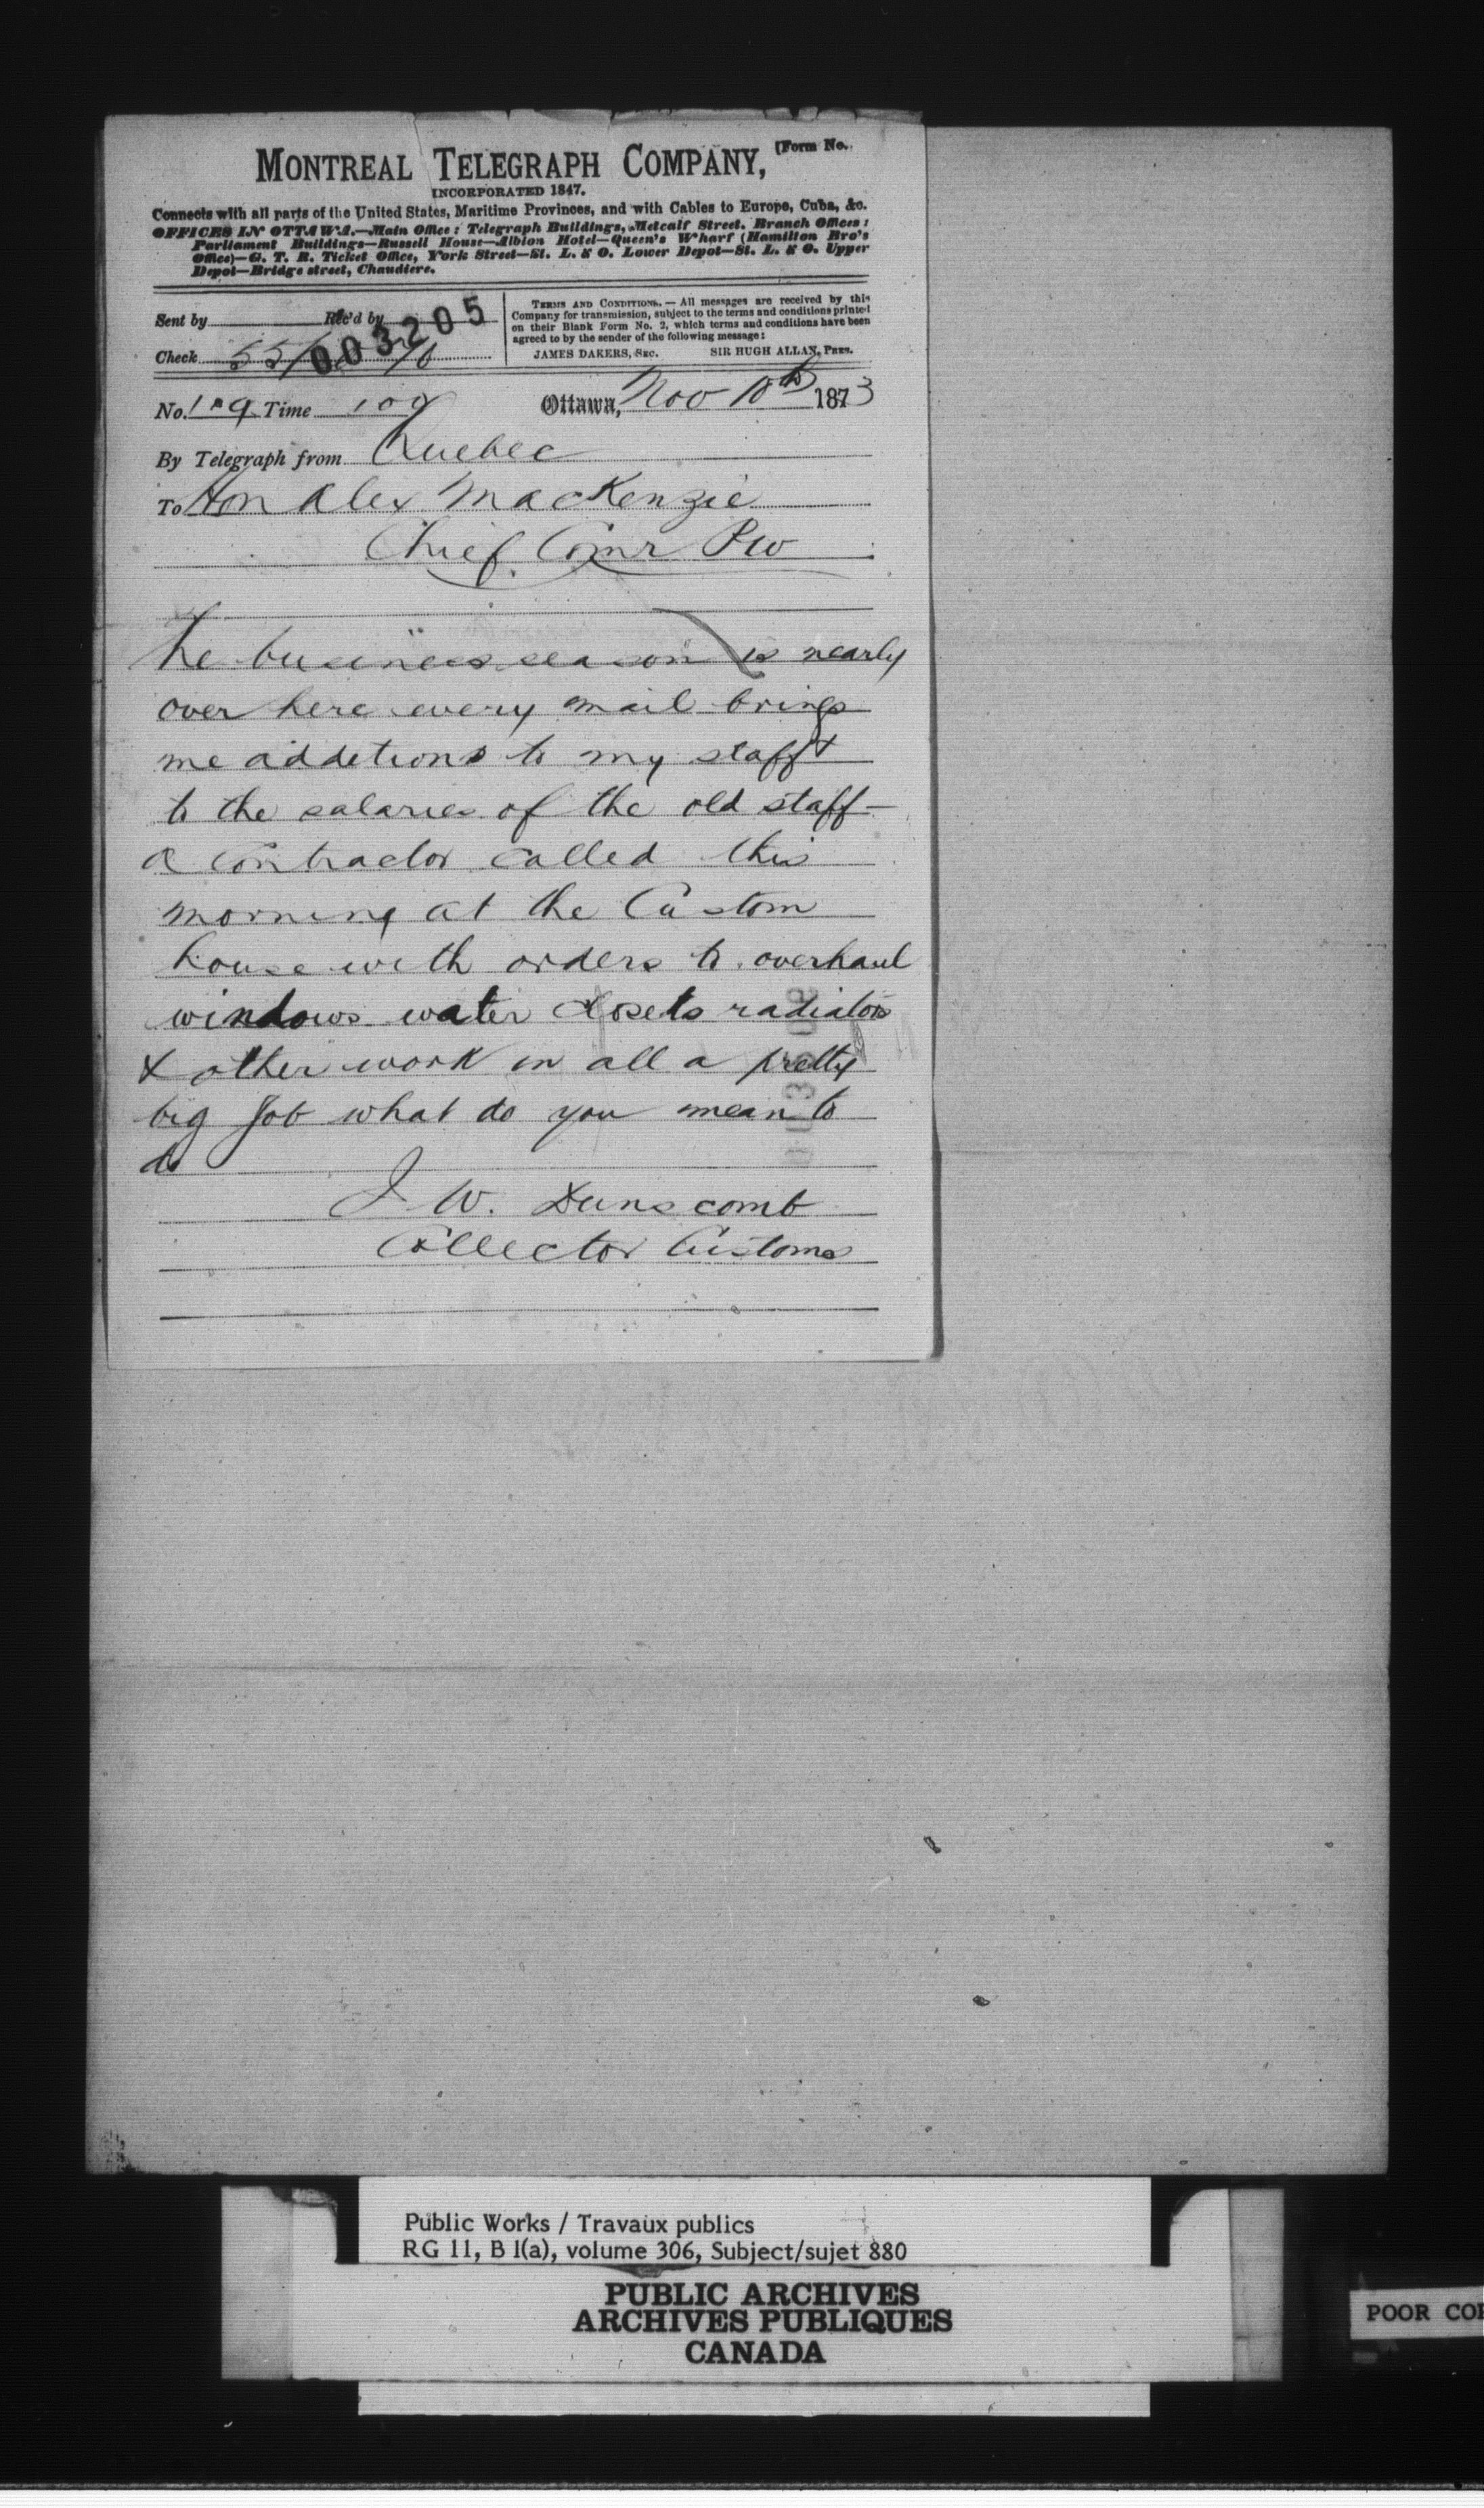 (Form No.
MONTREAL TELEGRAPH COMPANY,
INCORPORATED 1847.
Connects with all parts of the United States, Maritime Provinces, and with Cables to Europe, Cuba, &c.
OFFICES IN OTTAWA.—Main Office: Telegraph Buildings, Metcalf Street. Branch Offices:
Parliament Buildings—Russell House—Albion Hotel—Queen's Wharf (Hamilton Bro's
Office)—G. T. R. Ticket Office, York Street—St. L. & O. Lower Depot—St. L. & O. Upper
Depot—Bridge street, Chaudiere.
Sent by Rec'd by
003205
Check 55/
TERMS AND CONDITIONS. — All messages are received by this
Company for transmission, subject to the terms and conditions printed
on their Blank Form No. 2, which terms and conditions have been
agreed to by the sender of the following message:
JAMES DAKERS, SEC. SIR HUGH ALLAN, PRES.
No. Time 109 Ottawa, Nov 10th 1873
By Telegraph from Quebec
To Hon Alex MacKenzie
Chief Comr PW
The business season is nearly
over here every mail brings
me additions to my staff &
to the salaries of the old staff—
a contractor called this
morning at the Custom
house with orders to overhaul
windows water closets radiators
& other work in all a pretty
big job what do you mean to
do
J W. Dunscomb
Collector Customs
Public Works / Travaux publics
RG 11, B 1(a), volume 306, Subject/sujet 880
PUBLIC ARCHIVES
ARCHIVES PUBLIQUES
CANADA
POOR COP